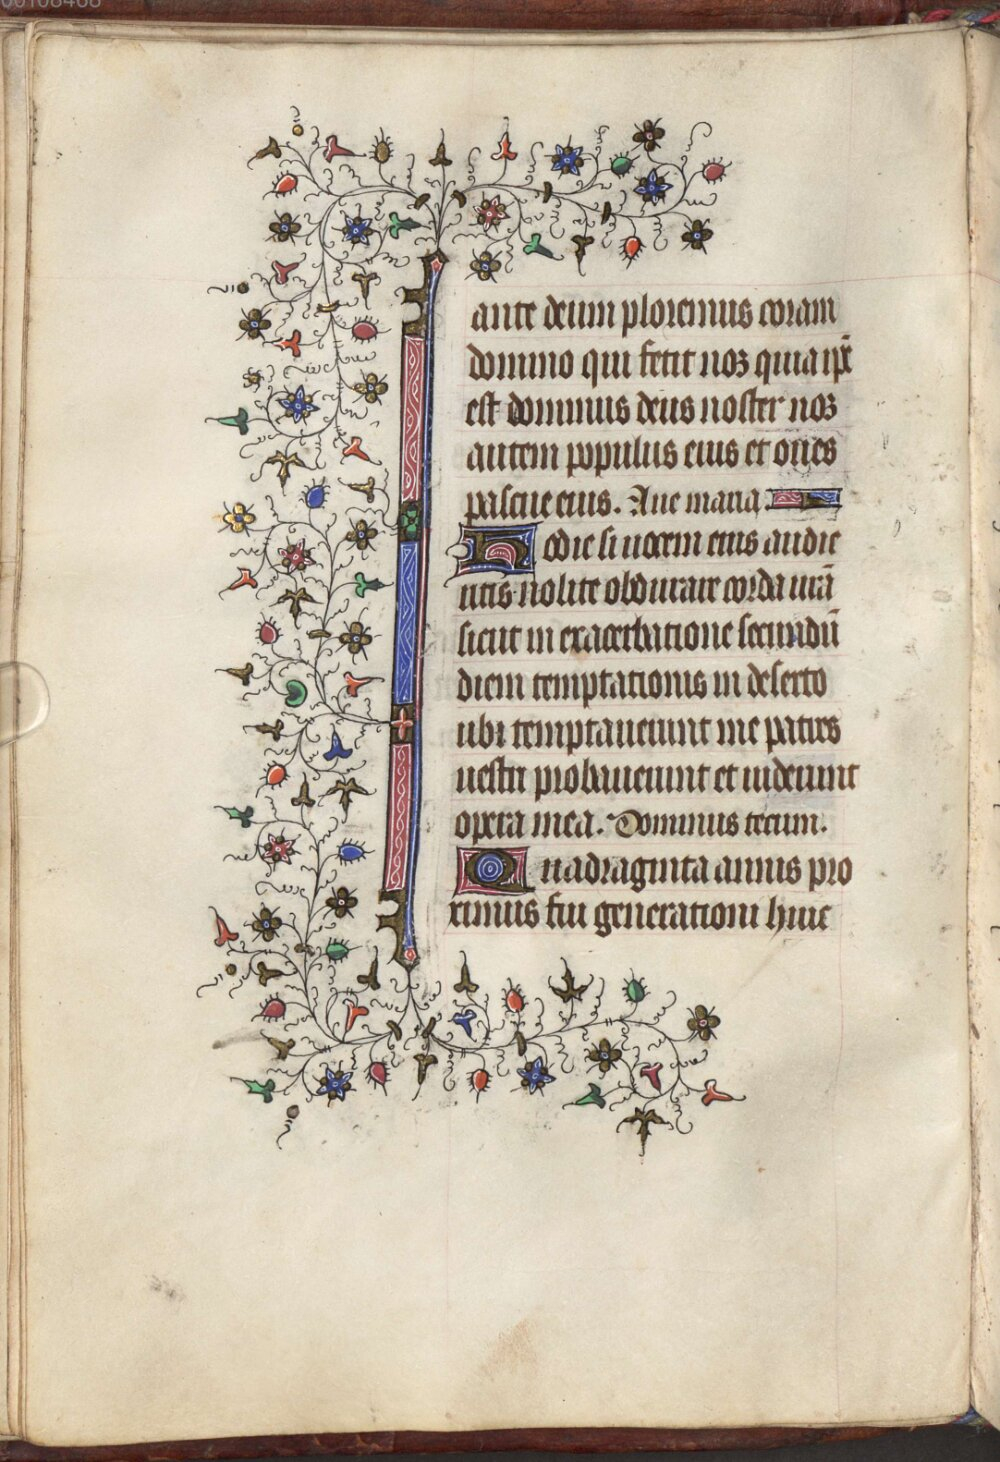 ante deum ploremus coram
domino qui fecit nos quia ip̄e
est dominus deus noster nos
autem populus eius et oues
pascue eius. Aue maria.
Hodie si uocem eius audie
ritis nolite obdurare corda urā
sicut in exacerbatione secundū
diem temptationis in deserto
ubi temptauerunt me patres
uestri probauerunt et uiderunt
opera mea. Dominus tecum.
Quadraginta annis pro
ximus fui generationi huic